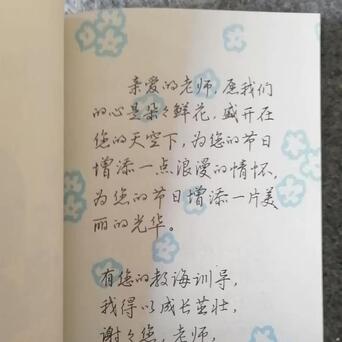 亲爱的老师,愿我们
的心是朵々鲜花,盛开在
您的天空下,为您的节日
增添一点浪漫的情怀,
为您的节日增添一片美
丽的光华。
有您的教诲训导,
我得以成长茁壮,
谢々您,老师,